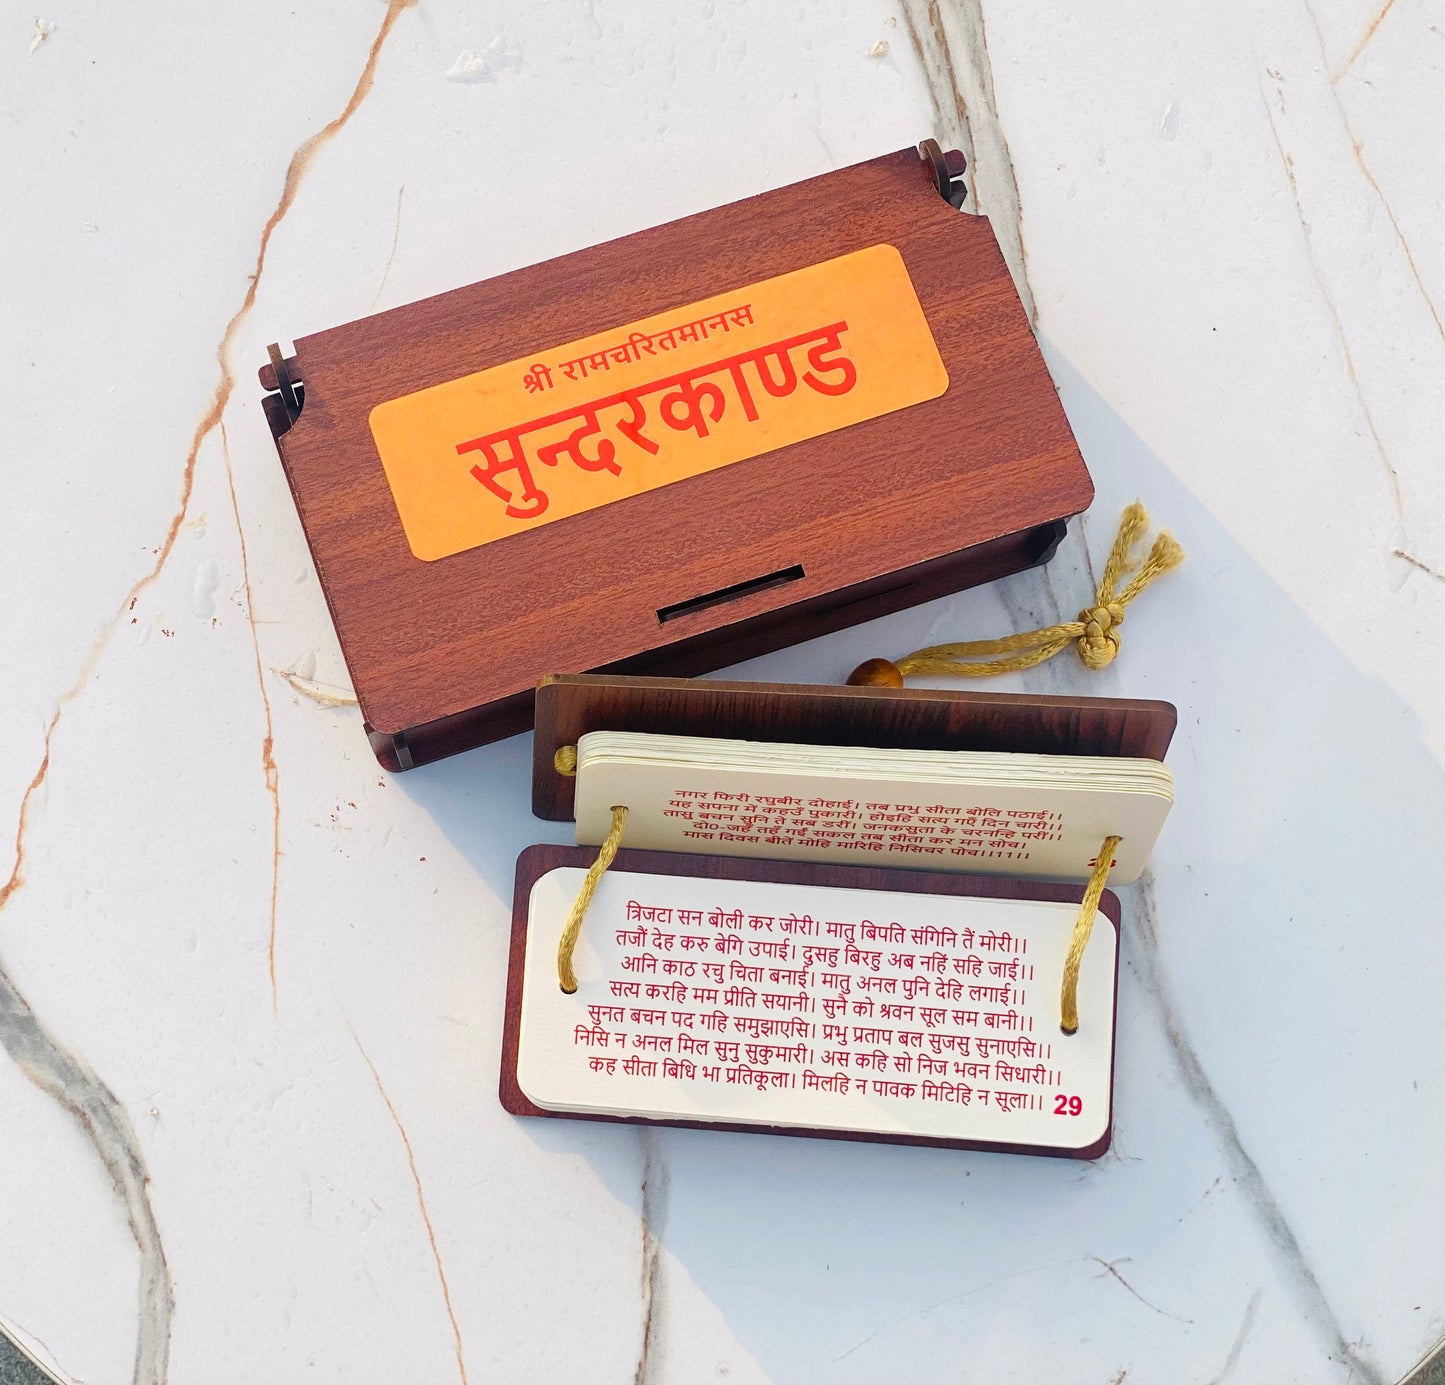 श्री रामचरितमानस
सुन्दरकाण्ड
नगर फिरी रघुबीर दोहाई। तब प्रभु सीता बोलि पठाई।।
यह सपना में कहउँ पुकारी। होइहि सत्य गएँ दिन चारी।।
तासु बचन सुनि ते सब डरीं। जनकसुता के चरनन्हि परीं।।
दो०-जहँ तहँ गईं सकल तब सीता कर मन सोच।
मास दिवस बीतें मोहि मारिहि निसिचर पोच।।11।।
त्रिजटा सन बोली कर जोरी। मातु बिपति संगिनि तैं मोरी।।
तजौं देह करु बेगि उपाई। दुसहु बिरहु अब नहिं सहि जाई।।
आनि काठ रचु चिता बनाई। मातु अनल पुनि देहि लगाई।।
सत्य करहि मम प्रीति सयानी। सुनै को श्रवन सूल सम बानी।।
सुनत बचन पद गहि समुझाएसि। प्रभु प्रताप बल सुजसु सुनाएसि।।
निसि न अनल मिल सुनु सुकुमारी। अस कहि सो निज भवन सिधारी।।
कह सीता बिधि भा प्रतिकूला। मिलहि न पावक मिटिहि न सूला।। 29